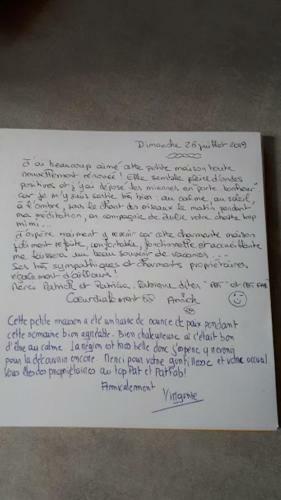 Dimanche 28 juillet 2019
J'ai beaucoup aimé cette petite maison toute
nouvellement rénovée ! Elle semble pleine d'ondes
positives et j'y ai déposé les miennes en porte bonheur
car je m'y suis sentie très bien au calme, au soleil,
à l'ombre, sous le chant des oiseaux le matin pendant
ma méditation, en compagnie de votre chatte
mimi...
J'espère vraiment y revenir car cette charmante maison
joliment refaite, confortable, fonctionnelle et accueillante
me laissera un beau souvenir de vacances...
Ses très sympathiques et charmants propriétaires,
également d'ailleurs !
Merci Patrick et Patricia, dites "Pat" et
Cordialement Annick
Cette petite maison a été un havre de paix pendant
cette semaine bien agréable. Bien chaleureuse où c'était bon
d'être au calme. La région est très belle donc j'espère y revenir
pour la découvrir encore. Merci pour votre gentillesse et votre accueil
Vous êtes des propriétaires au top Pat et
Amicalement
Virginie